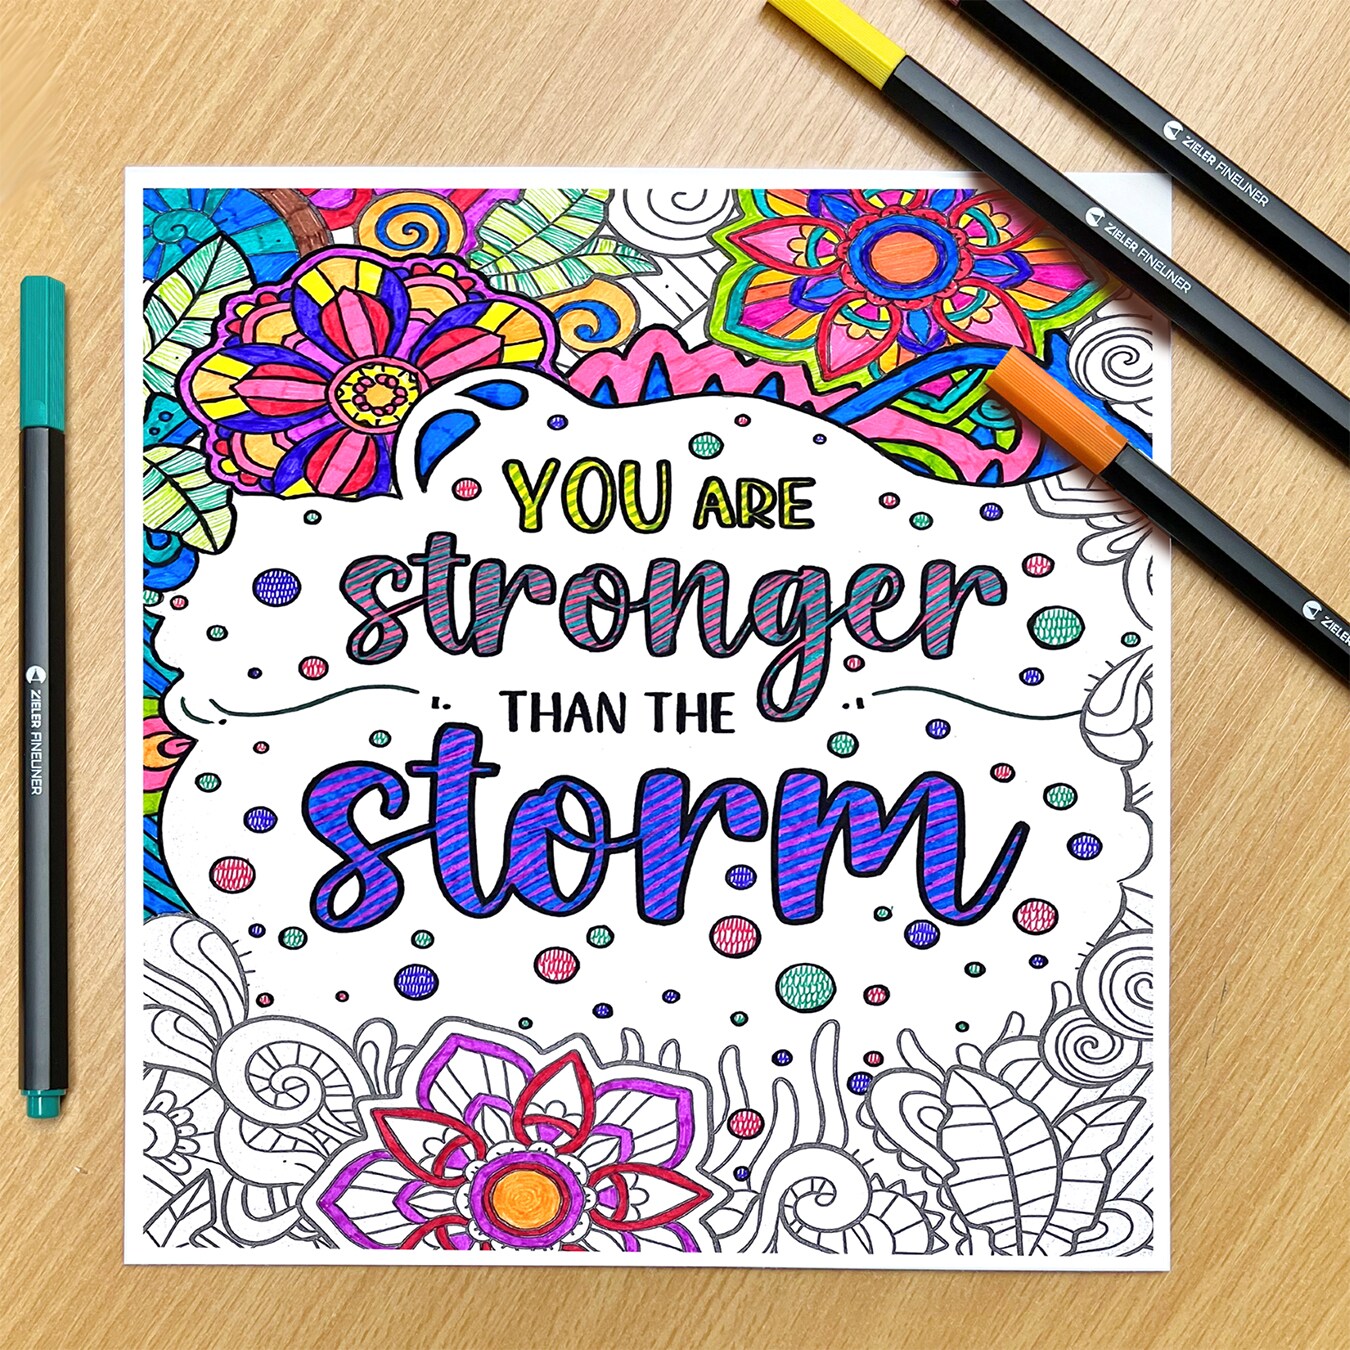 YOU ARE
stronger
THAN THE
storm
ZIELER FINELINER
ZIELER FINELINER
ZIELER FINELINER